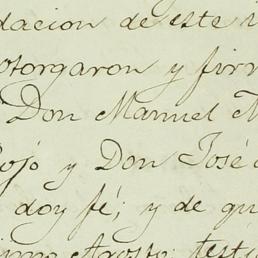 dacion de este
otorgaron y fir
Don Manuel M
Rojo y Don José
doy fé; y de qu
Agosto: testi